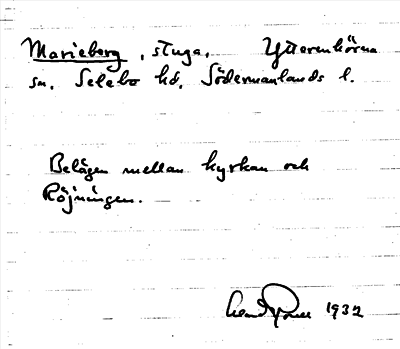 Marieberg, stuga. Ytterenhörna
sn. Selebo hd. Södermanlands l.
Belägen mellan kyrkan och
Röjningen.
1932